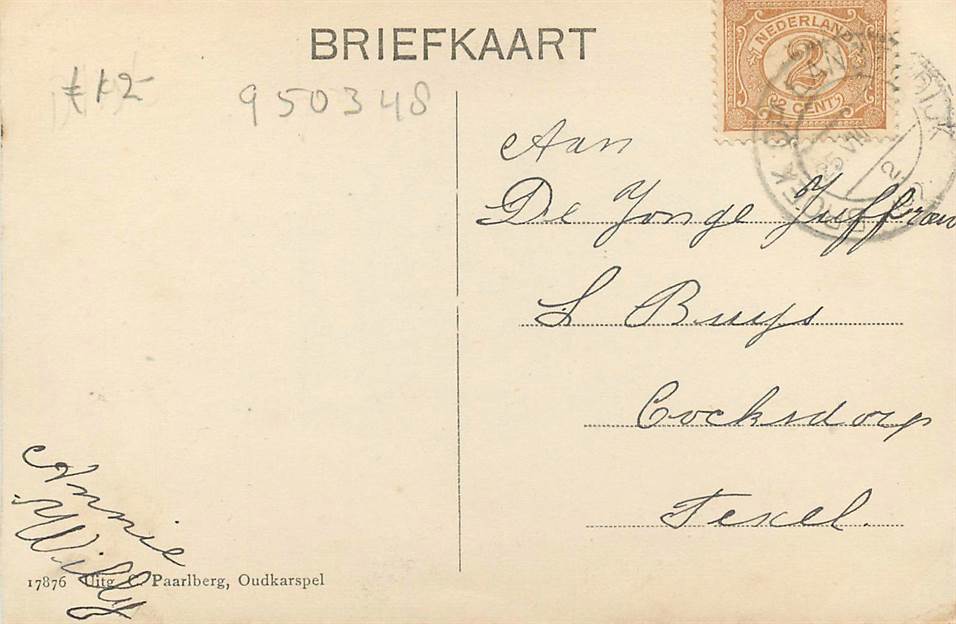 BRIEFKAART
NEDERLAND
2
2 CENT
BROEK
25 VIII
f 12-
950348
Aan
De Jonge Juffrouw
L Buijs
Cocksdorp
Texel.
Annie
Willy
17876 Uitg. C. Paarlberg, Oudkarspel